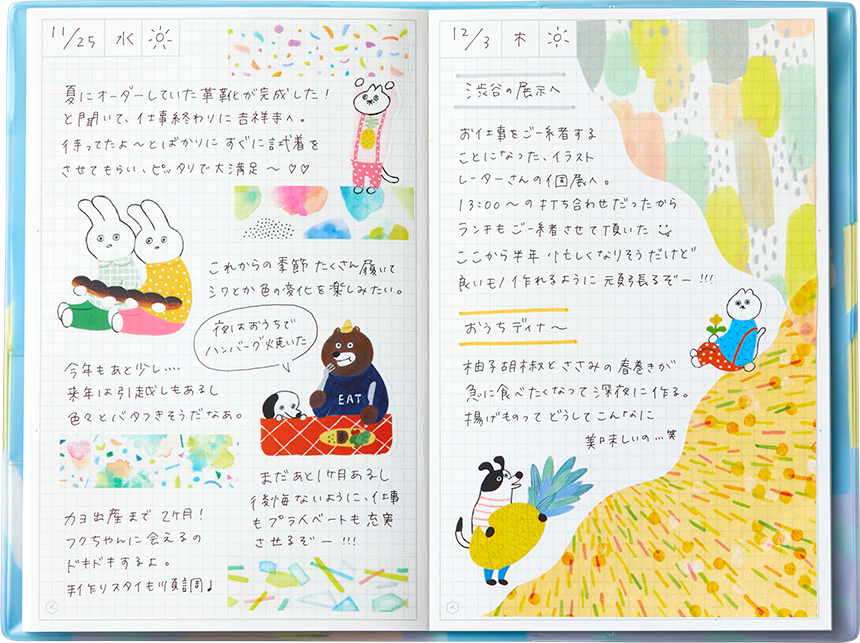 11/25 水
夏にオーダーしていた革靴が完成した!
と聞いて、仕事終わりに吉祥寺へ。
待ってたよ〜とばかりに すぐに試着を
させてもらい、ピッタリで大満足 〜 ♡♡
これからの季節 たくさん履いて
シワとか色の変化を楽しみたい。
夜はおうちで
ハンバーグ焼いた
EAT
今年もあと少し....
来年は引越しもあるし
色々とバタつきそうだなあ。
まだあと1ヶ月あるし
後悔ないように、仕事
もプライベートも充実
させるぞー!!!
カヨ出産まで 2ヶ月!
フクちゃんに会えるの
ドキドキするよ。
手作りスタイも順調♩
12/3 木
渋谷の展示へ
お仕事をご一緒する
ことになった、イラスト
レーターさんの個展へ。
13:00〜の打ち合わせだったから
ランチもご一緒させて頂いた
ここから半年 忙しくなりそうだけど
良いもの作れるように 頑張るぞー!!!
おうちディナ〜
柚子胡椒とささみの春巻きが
急に食べたくなって深夜に作る。
揚げものってどうしてこんなに
美味しいの...笑